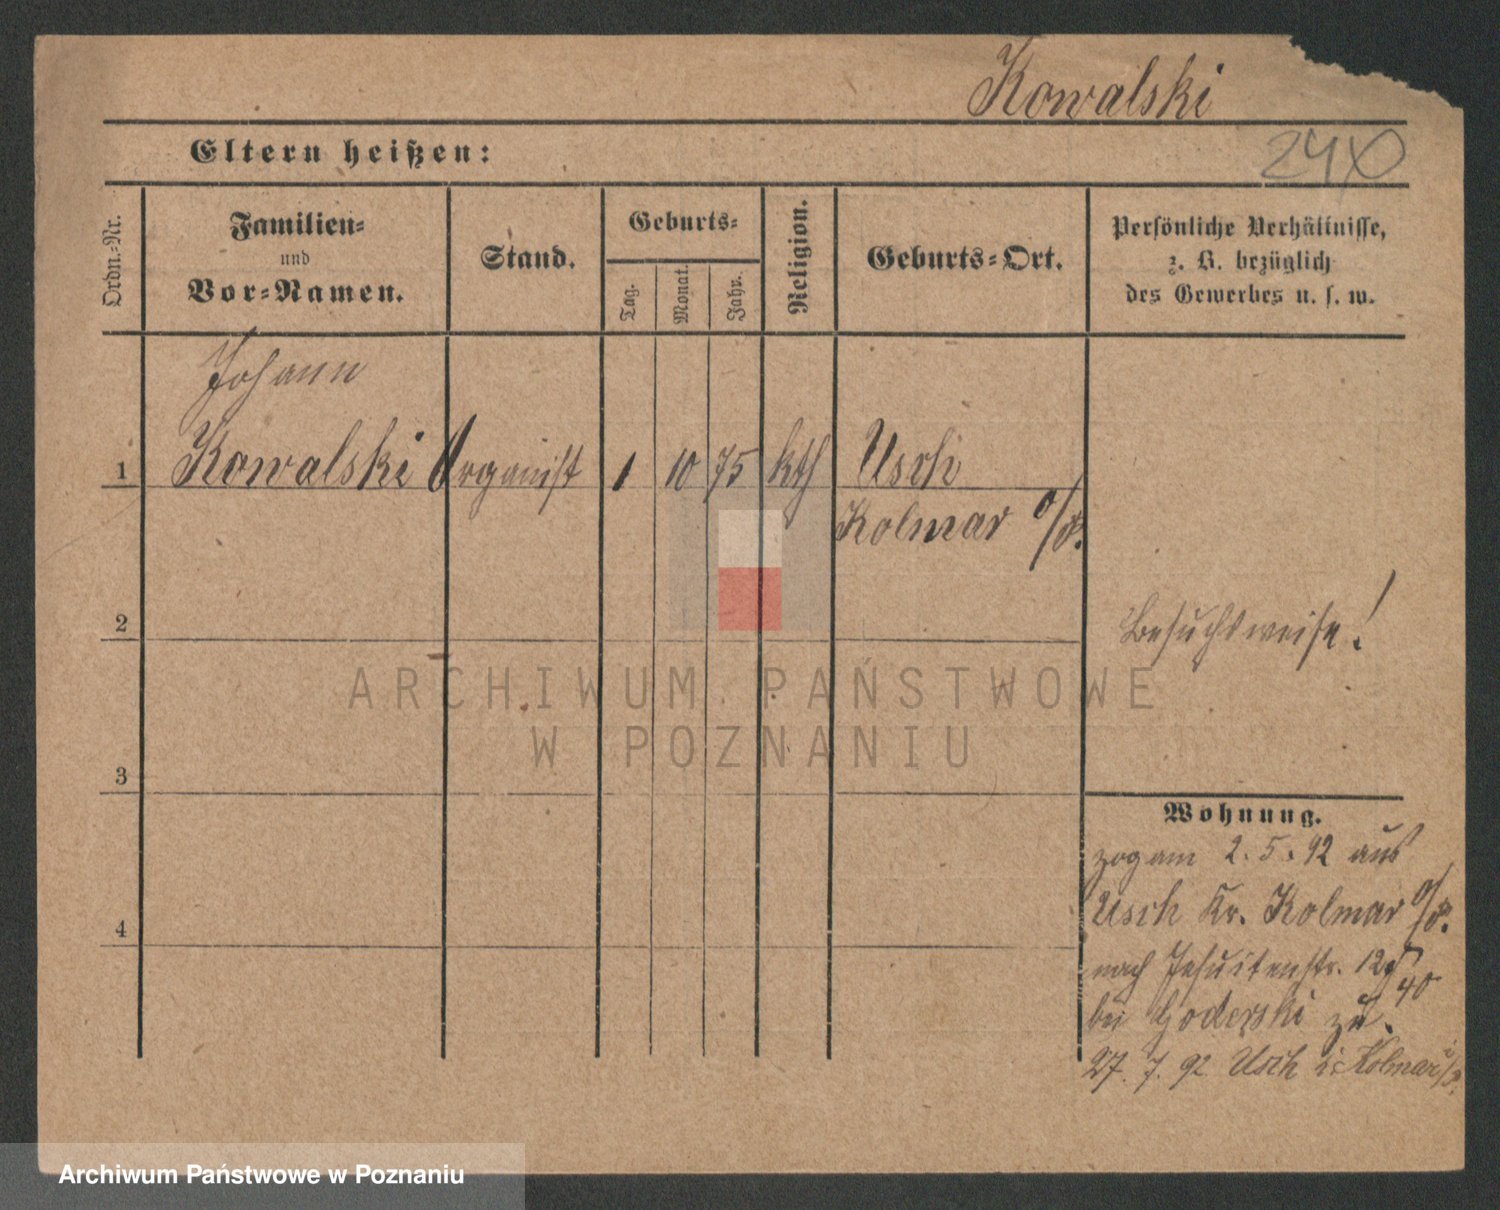 Kowalski
Eltern heißen:
240
Ordn.-Nr.
Familien-
und
Vor-Namen.
Stand.
Geburts-
Tag.
Monat.
Jahr.
Religion.
Geburts-Ort.
Persönliche Verhältnisse,
z. B. bezüglich
des Gewerbes u. s. w.
Johann
1 Kowalski Organist 1 10 75 kth Usch
Kolmar i/P.
2
Besuchsweise!
3
4
ARCHIWUM PAŃSTWOWE
W POZNANIU
Wohnung.
zog am 2. 5. 92 aus
Usch Kr. Kolmar i/P.
nach Jesuitenstr. 12
40
bei zu.
27. 7. 92 Usch Kolmar i/P.
Archiwum Państwowe w Poznaniu